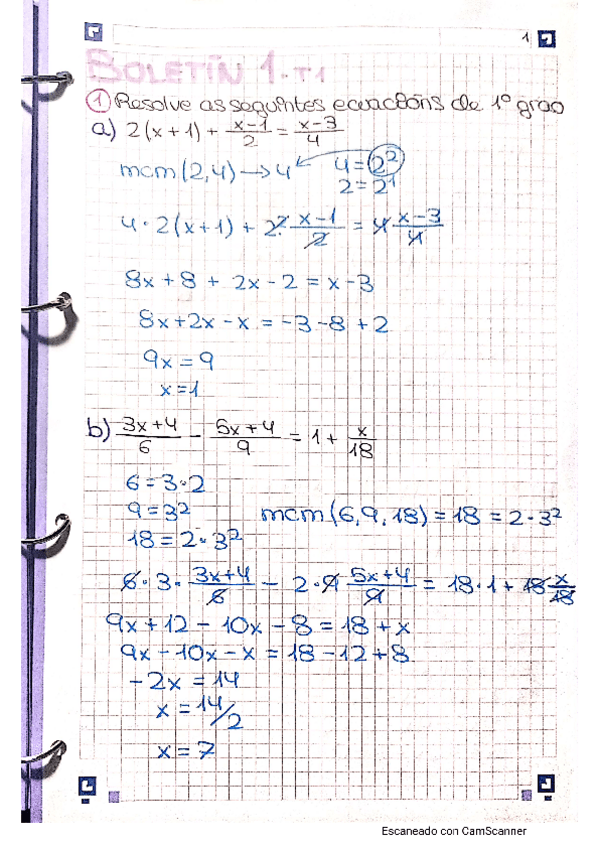 1
BOLETÍN 1. T1
① Resolve as seguintes ecuacións de 1º grao
a) 2(x+1) + (x-1)/2 = (x-3)/4
mcm (2,4) → 4 4 = 2²
2 = 2¹
4 · 2(x+1) + 2·2 · (x-1)/2 = 4 · (x-3)/4
8x + 8 + 2x - 2 = x - 3
8x + 2x - x = -3 - 8 + 2
9x = 9
x = 1
b) (3x+4)/6 - (5x+4)/9 = 1 + x/18
6 = 3·2
9 = 3²
mcm (6, 9, 18) = 18 = 2 · 3²
18 = 2 · 3²
6 · 3 · (3x+4)/6 - 2 · 9 · (5x+4)/9 = 18 · 1 + 18 x/18
9x + 12 - 10x - 8 = 18 + x
9x - 10x - x = 18 - 12 + 8
-2x = 14
x = 14/2
x = 7
Escaneado con CamScanner